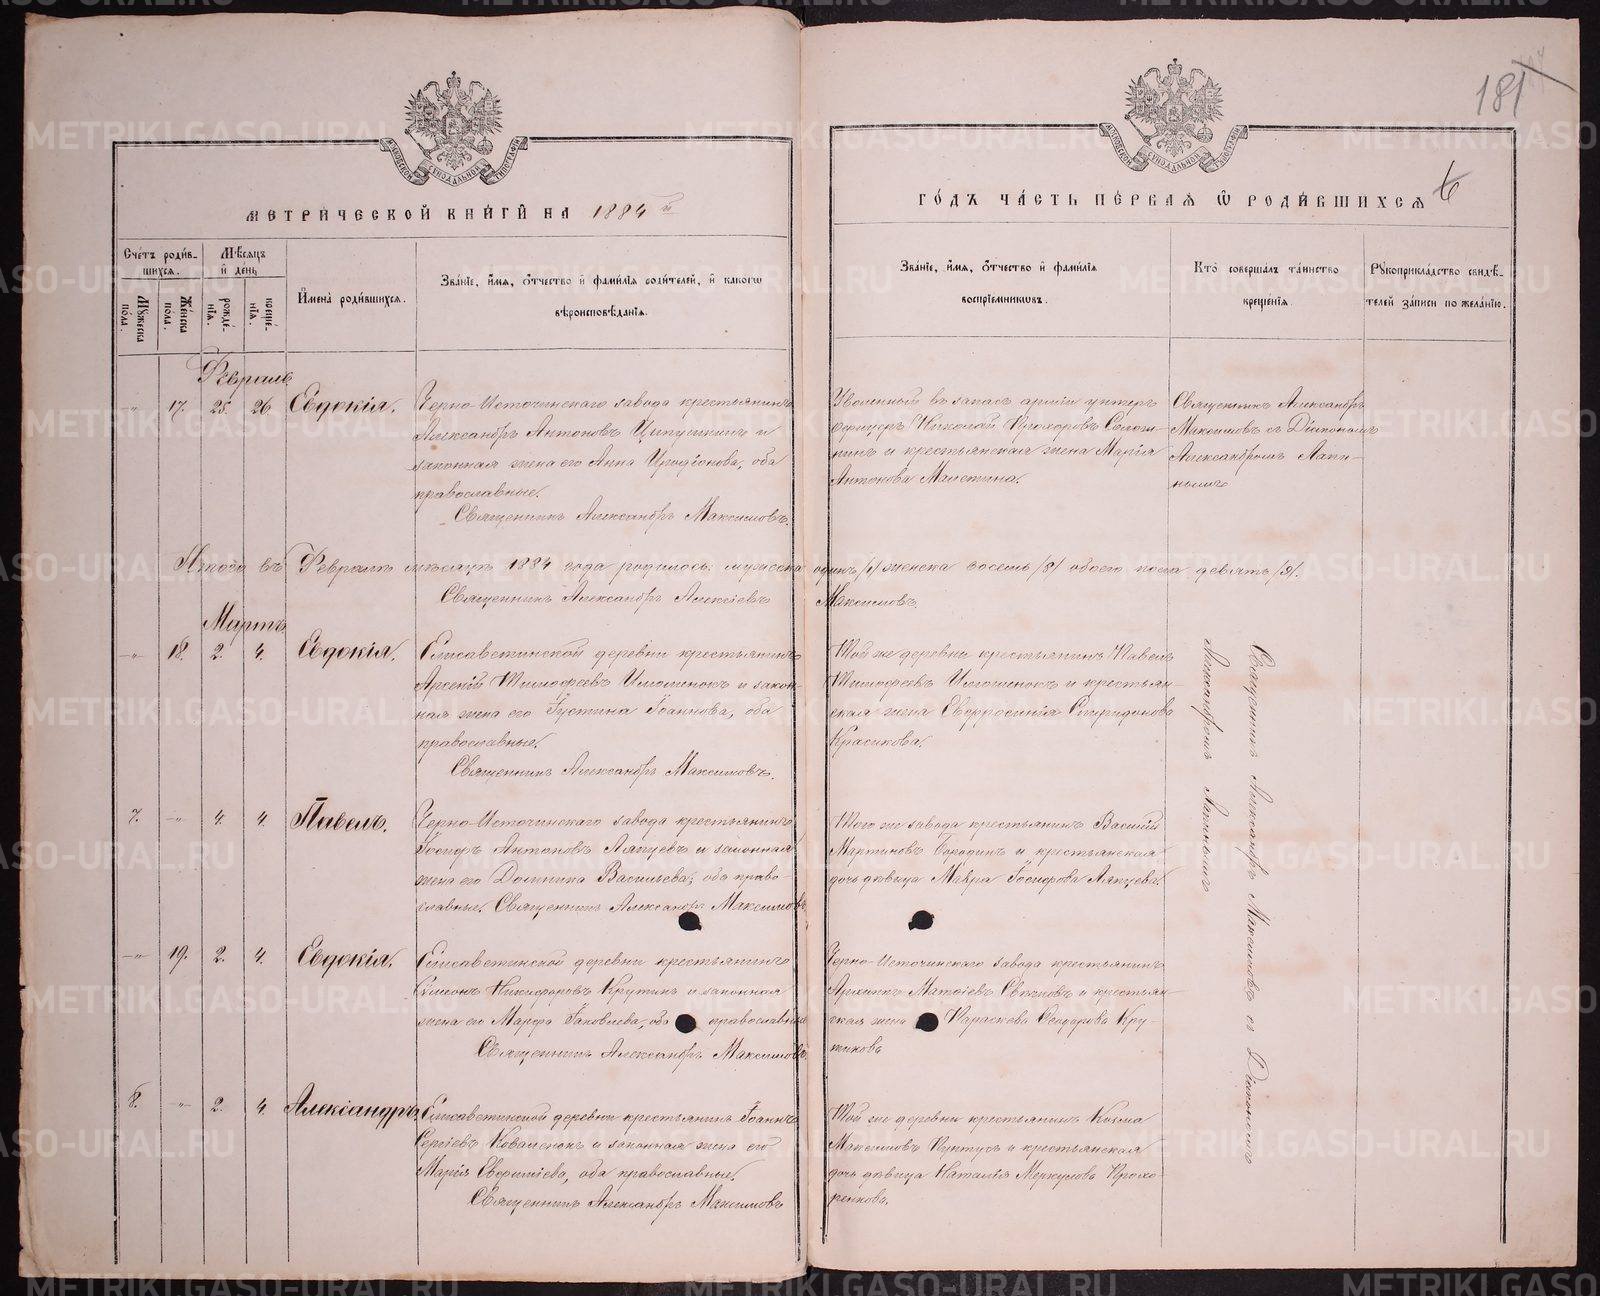 МЕТРИЧЕСКОЙ КНИГИ НА 1884 й
ГОДЪ ЧАСТЬ ПЕРВАЯ Ѿ РОДИВШИХСЯ
181
6
Счетъ родив-
шихся.
Мужеска пола.
Женска пола.
Мѣсяцъ и день
рожде-
нія.
креще-
нія.
Имена родившихся.
Званіе, имя, отчество и фамилія родителей, и какого
вѣроисповѣданія.
Званіе, имя, отчество и фамилія
воспріемниковъ.
Кто совершалъ таинство
крещенія.
Рукоприкладство свидѣ-
телей записи по желанію.
Февраль
17. 25. 26. Евдокія.
Черно-Источинскаго завода крестьянинъ
Александръ Антоновъ и
законная жена его Анна Иродіонова, оба
православные.
Священникъ Александръ Максимовъ.
Уволенный въ запасъ арміи унтеръ
офицеръ Николай Прохоровъ
и крестьянская жена Марія
Антонова
Священникъ Александръ
Максимовъ съ Діакономъ
Александромъ Лапи-
нымъ
Итого въ Февралѣ мѣсяцѣ 1884 года родилось: мужска одинъ /1/ женска восемь /8/ обоего пола девять /9/.
Священникъ Александръ Алексіевъ Максимовъ.
Мартъ
18. 2. 4. Евдокія.
Елисаветинской деревни крестьянинъ
Арсеній Тимофеевъ и закон-
ная жена его Іустина Іоаннова, оба
православные.
Священникъ Александръ Максимовъ.
Той же деревни крестьянинъ Павелъ
Тимофеевъ и крестьян-
ская жена Евфросинія Спиридонова
Красикова.
Священникъ Александръ Максимовъ съ Діакономъ
Александромъ Лапинымъ
7. 4. 4. Павелъ.
Черно-Источинскаго завода крестьянинъ
Іосифъ Антоновъ Ляпцевъ и законная
жена его Домника Васильева, оба право-
славные. Священникъ Александръ Максимовъ
Того же завода крестьянинъ Василій
Мартиновъ Бородинъ и крестьянская
дочь дѣвица Мавра Іосифова Ляпцева.
19. 2. 4. Евдокія.
Елисаветинской деревни крестьянинъ
Сѵмеонъ Никифоровъ и законная
жена его Марфа Іаковлева, оба православные
Священникъ Александръ Максимовъ
Черно-Источинскаго завода крестьянинъ
Матѳіевъ и крестьян-
ская жена Параскева Ѳеодорова Кру-
тикова
8. 2. 4. Александръ.
Елисаветинской деревни крестьянинъ Іоаннъ
Сергіевъ Коваленокъ и законная жена его
Марія оба православные.
Священникъ Александръ Максимовъ
Той же деревни крестьянинъ Козма
Максимовъ и крестьянская
дочь дѣвица Наталія Меркулова Прохо-
ренкова.
METRIKI.GASO-URAL.RU